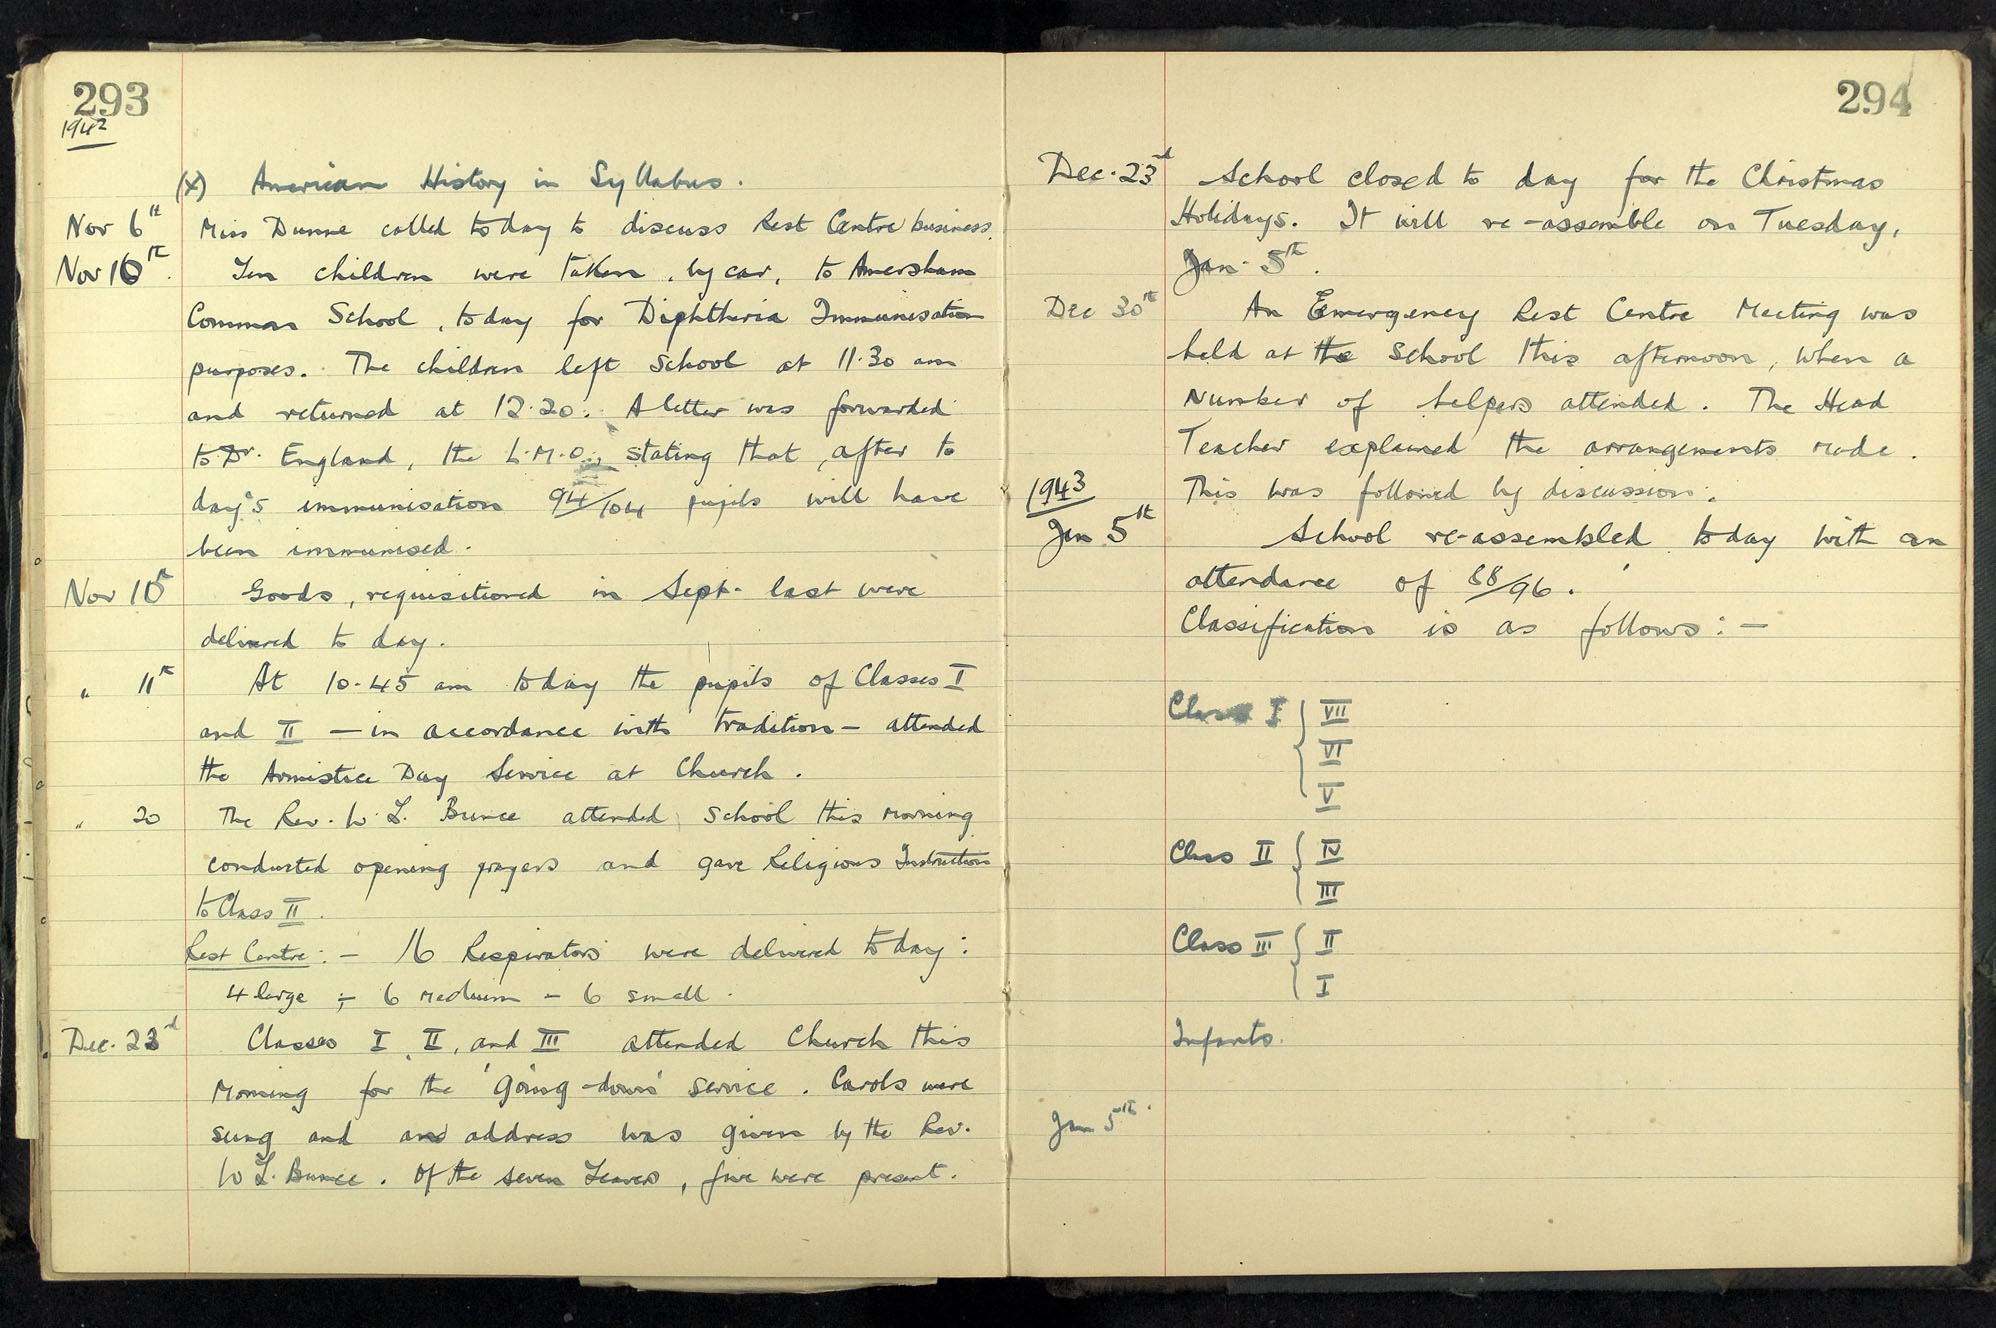 293
1942
(x) American History in Syllabus.
Nov 6th Miss Dunne called today to discuss Rest Centre business.
Nov 10th. Ten children were taken, by car, to Amersham
Common School, today for Diphtheria Immunisation
purposes. The children left School at 11.30 am
and returned at 12.20. A letter was forwarded
to Dr. England, the L.M.O., stating that, after to
day's immunisation 94/104 pupils will have
been immunised.
Nov 10th Goods, requisitioned in Sept. last were
delivered to day.
" 11th At 10-45 am today the pupils of Classes I
and II — in accordance with tradition — attended
the Armistice Day Service at Church.
" 20 The Rev. W. L. Bunce attended School this morning
conducted opening prayers and gave Religious Instruction
to Class II.
Rest Centre: - 16 Respirators were delivered today:
4 large ; - 6 medium - 6 small.
Dec. 23d Classes I, II, and III attended Church this
morning for the 'Going-down' service. Carols were
sung and and address was given by the Rev.
W L. Bunce. Of the seven leavers, five were present.
294
Dec. 23d School closed to day for the Christmas
Holidays. It will re-assemble on Tuesday,
Jan. 5th.
Dec 30th An Emergency Rest Centre Meeting was
held at the School this afternoon, when a
number of helpers attended. The Head
Teacher explained the arrangements made.
1943 This was followed by discussion.
Jan 5th School re-assembled today with an
attendance of 88/96.
Classification is as follows: —
Class I { VII
VI
V
Class II { IV
III
Class III { II
I
Infants.
Jan 5th.